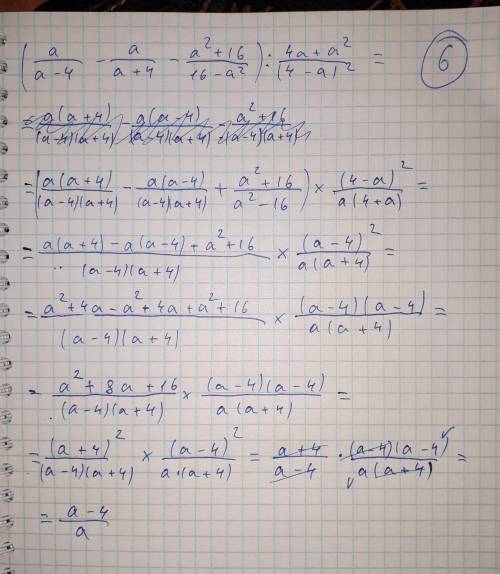 (a/(a-4) - a/(a+4) - (a²+16)/(16-a²)) : (4a+a²)/(4-a)² = 6
= a(a+4)/((a-4)(a+4)) - a(a-4)/((a-4)(a+4)) - (a²+16)/((a-4)(a+4))
= (a(a+4)/((a-4)(a+4)) - a(a-4)/((a-4)(a+4)) + (a²+16)/(a²-16)) × (4-a)²/(a(4+a)) =
= (a(a+4)-a(a-4)+a²+16)/((a-4)(a+4)) × (a-4)²/(a(a+4)) =
= (a²+4a-a²+4a+a²+16)/((a-4)(a+4)) × (a-4)(a-4)/(a(a+4)) =
= (a²+8a+16)/((a-4)(a+4)) × (a-4)(a-4)/(a(a+4)) =
= (a+4)²/((a-4)(a+4)) × (a-4)²/(a·(a+4)) = (a+4)/(a-4) · (a-4)(a-4)/(a(a+4)) =
= (a-4)/a